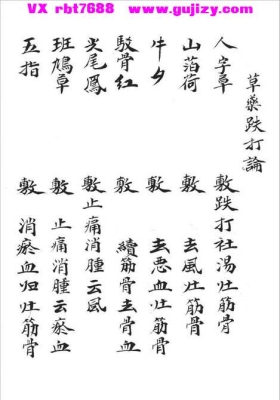 VX rbt7688 www.gujizy.com
草藥跌打論
人字草 敷跌打社湯壮筋骨
山萡荷 敷 去風壮筋骨
牛夕 敷 去恶血壮筋骨
駁骨紅 敷 續筋骨去骨血
尖尾鳳 敷止痛消腫云風
班鳩草 敷 止痛消腫云瘀血
五指 敷 消瘀血归壮筋骨